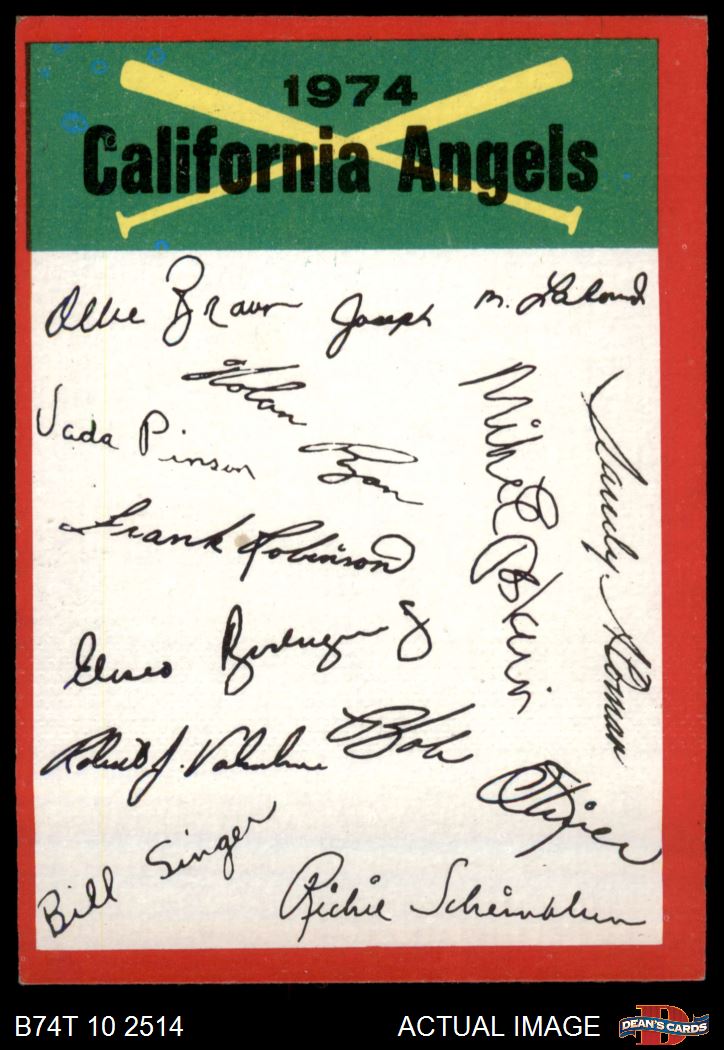 1974
California Angels
Ollie Brown
Joseph M. Lahoud
Nolan Ryan
Vada Pinson
Mike Epstein
Sandy Alomar
Frank Robinson
Eliseo Rodriguez
Robert J. Valentine
Bob Oliver
Bill Singer
Richie Scheinblum
B74T 10 2514
ACTUAL IMAGE
D
DEAN'S CARDS